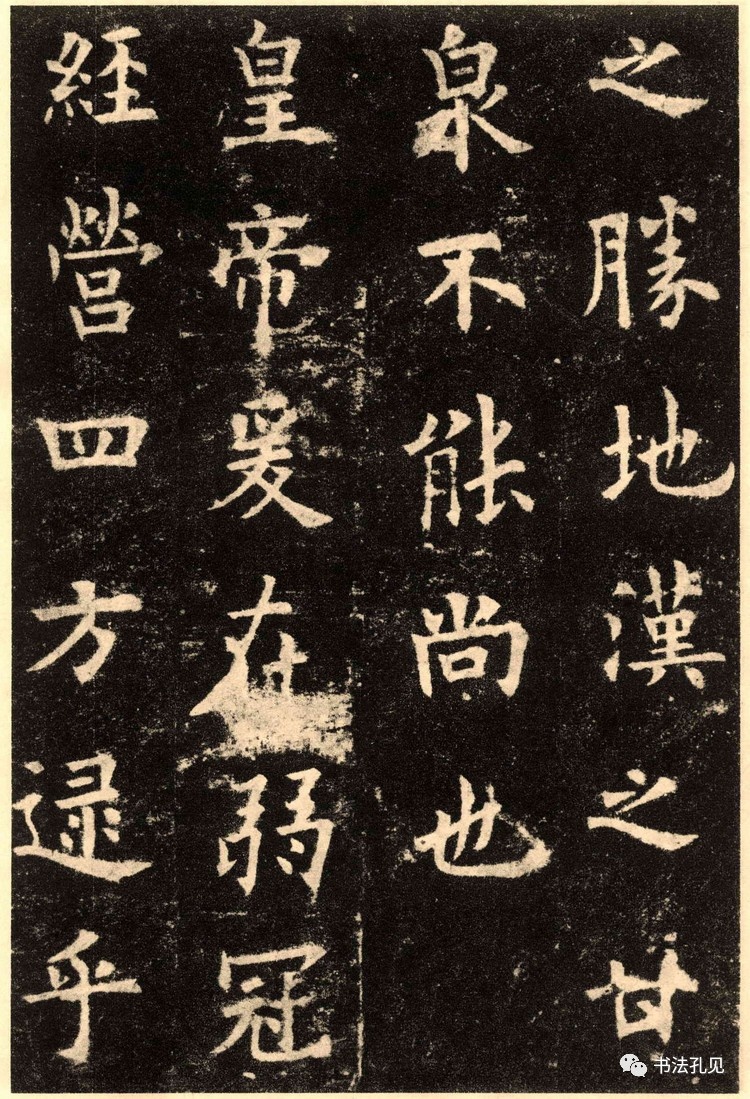 之勝地漢之甘
泉不能尚也
皇帝爰在弱冠
經營四方逯乎
书法孔见